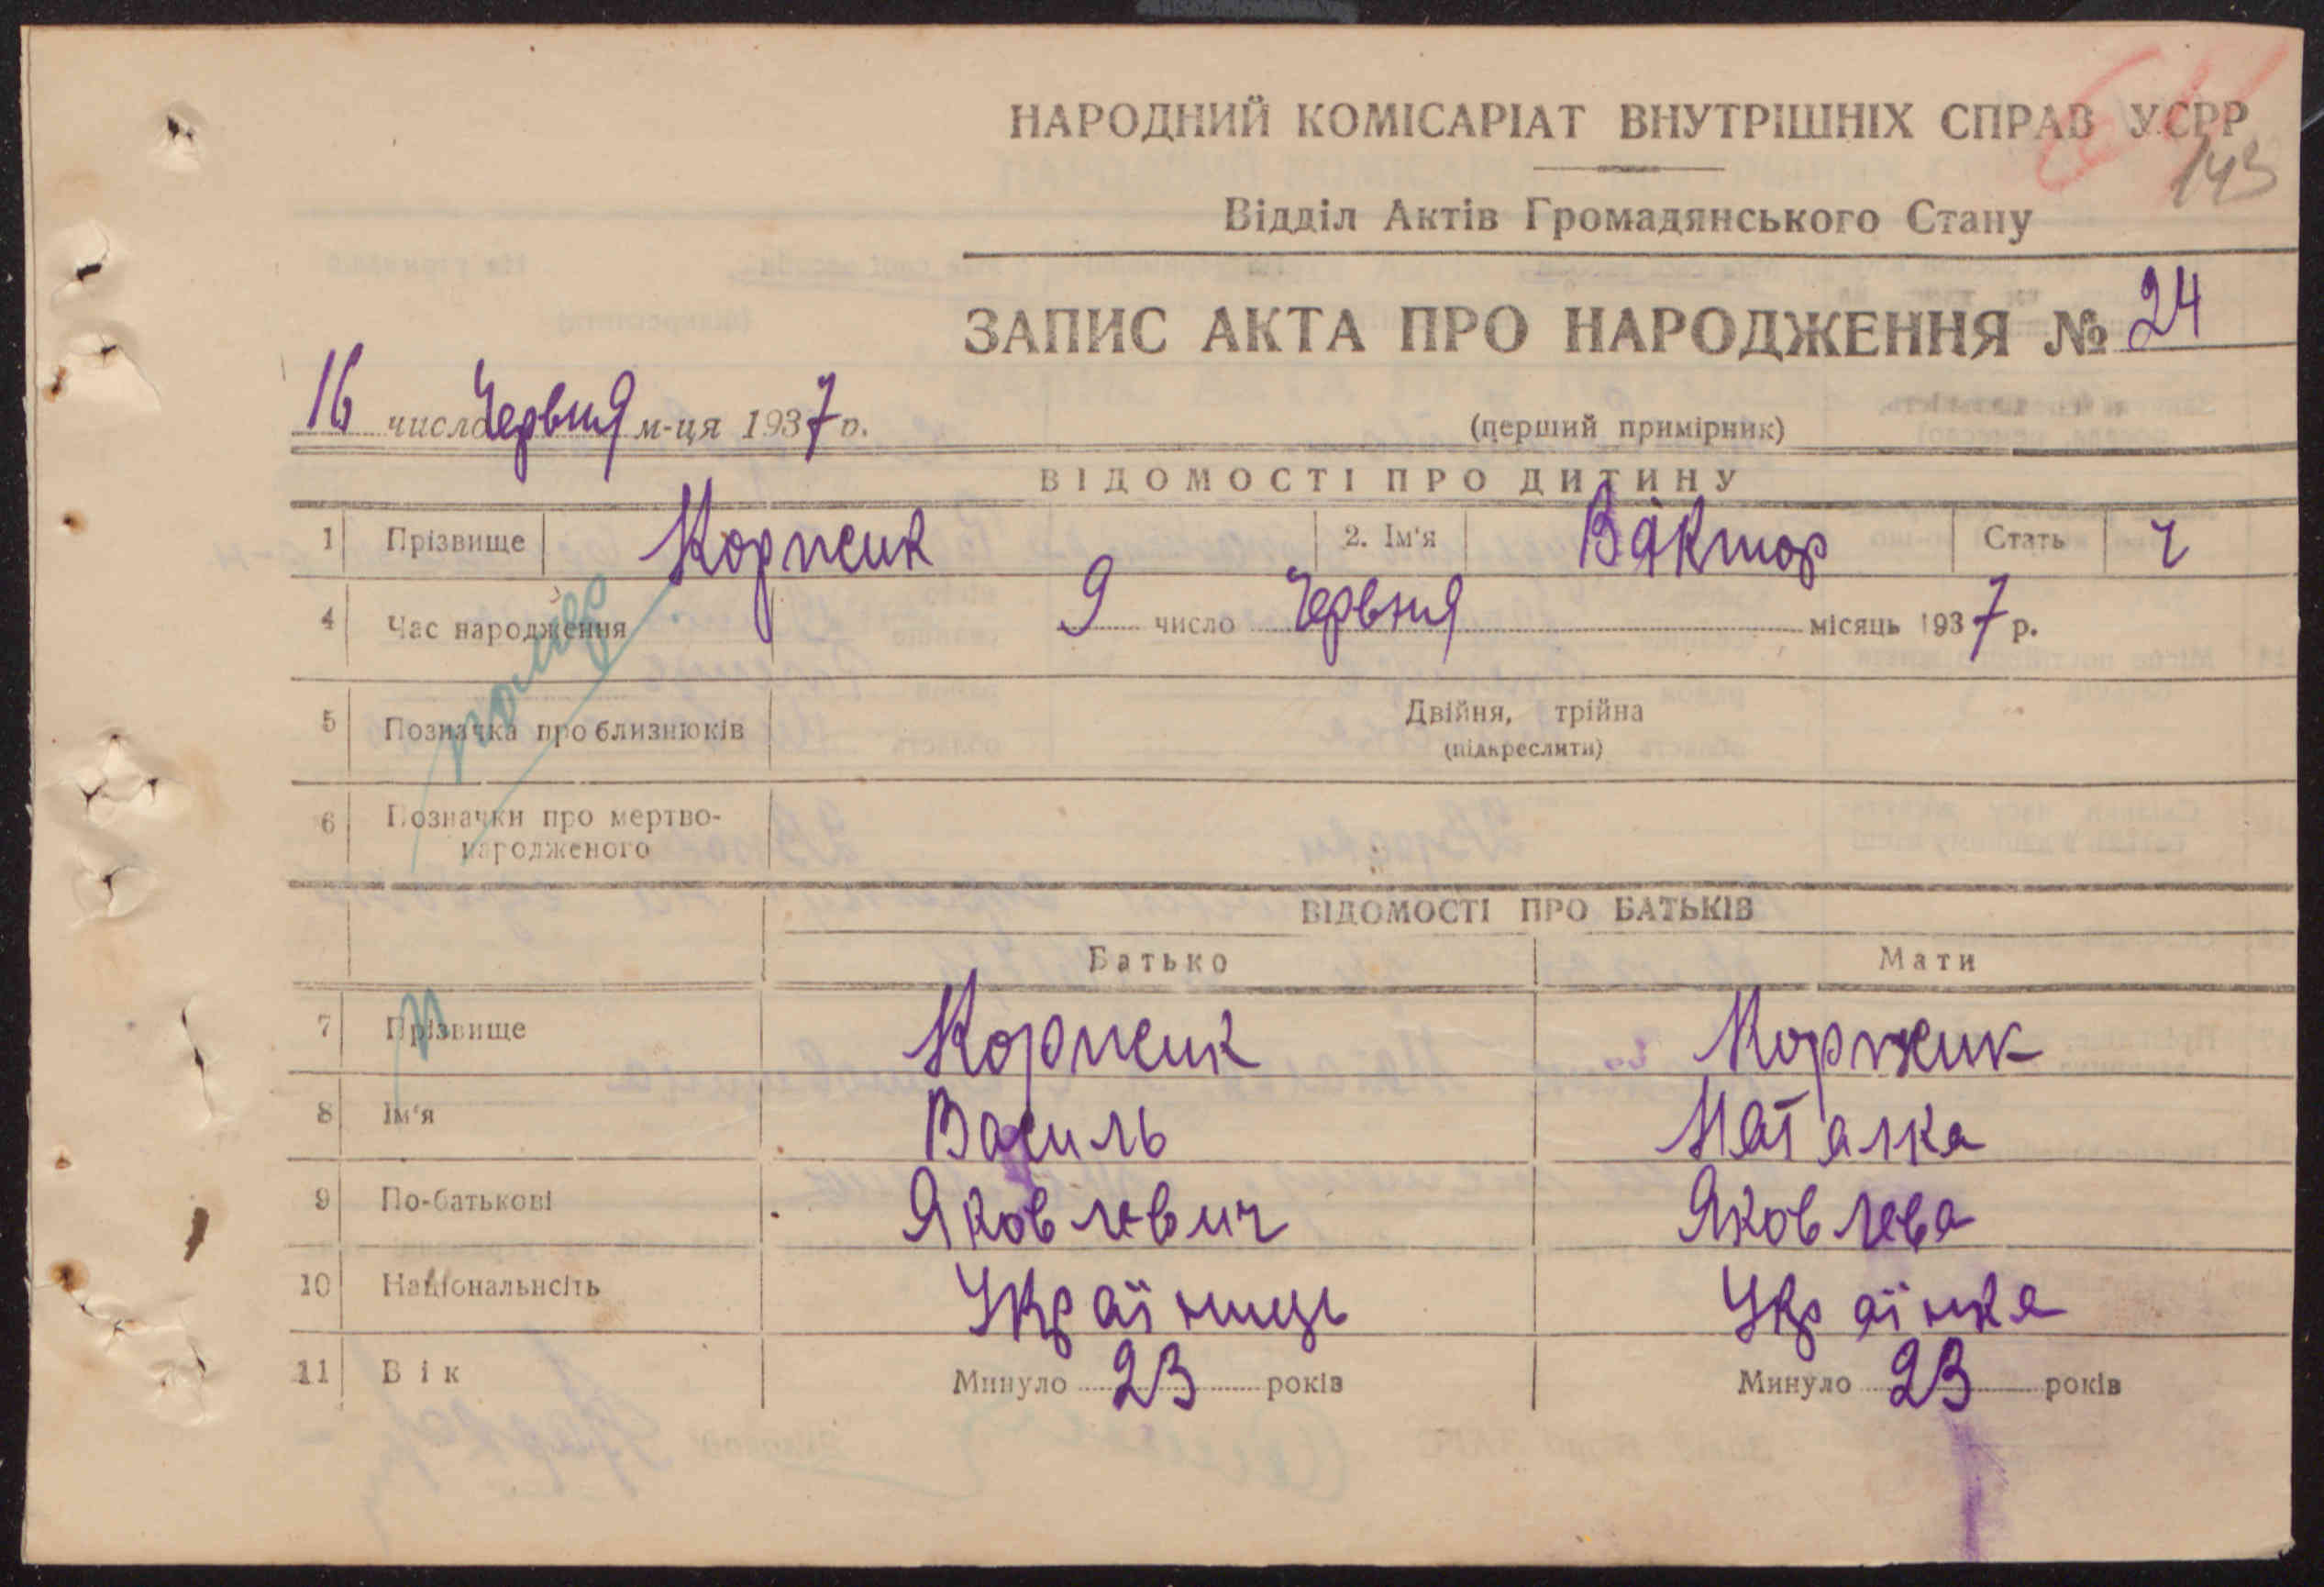 НАРОДНИЙ КОМІСАРІАТ ВНУТРІШНІХ СПРАВ УСРР
143
Відділ Актів Громадянського Стану
ЗАПИС АКТА ПРО НАРОДЖЕННЯ № 24
16 число Червня м-ця 1937 р.
(перший примірник)
ВІДОМОСТІ ПРО ДИТИНУ
1 Прізвище Коржик 2. Ім'я Віктор Стать ч
4 Час народження 9 число Червня місяць 1937 р.
помер
5 Позначка про близнюків Двійня, трійна
(підкреслити)
6 Позначки про мертво-
народженого
ВІДОМОСТІ ПРО БАТЬКІВ
Батько Мати
7 Прізвище Коржик Коржик
8 Ім'я Василь Наталка
9 По-батькові Яковлевич Яковлева
10 Національнсіть Україниць Українка
11 Вік Минуло 23 років Минуло 23 років